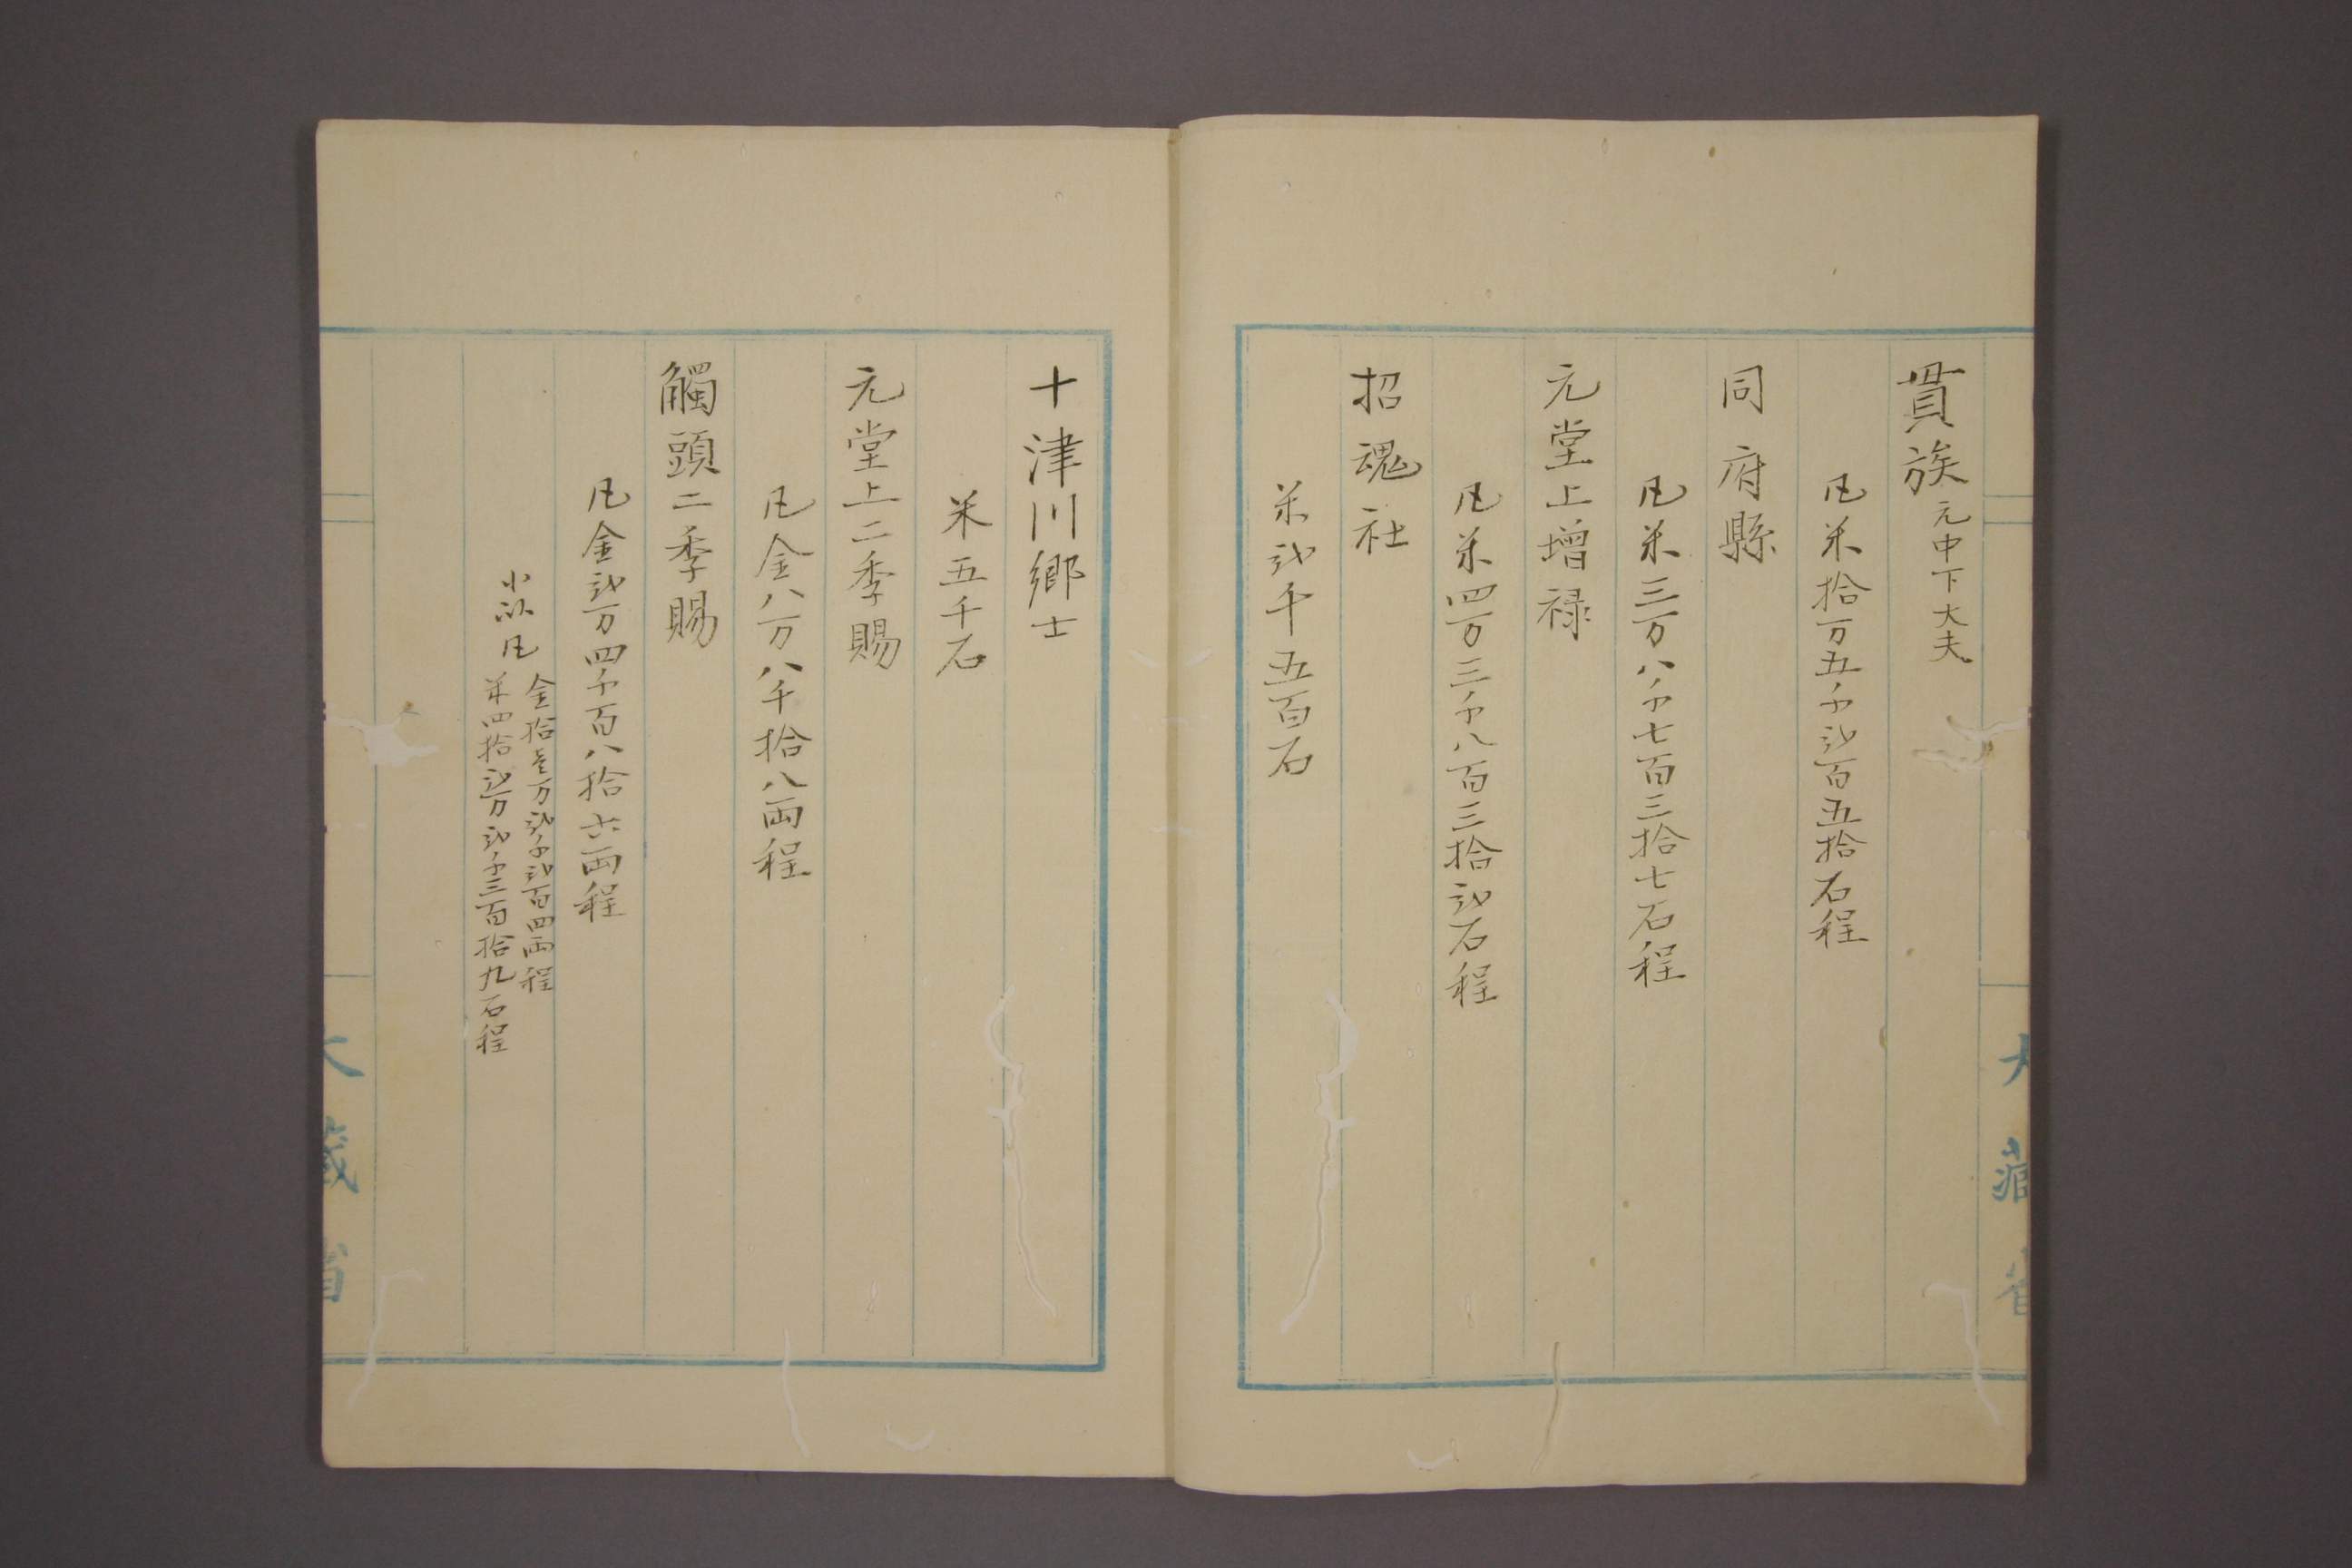 貫族元中下大夫
凡米拾万五千弐百五拾石程
同府縣
凡米三万八千七百三拾七石程
元堂上増禄
凡米四万三千八百三拾弐石程
招魂社
米弐千五百石
十津川郷士
米五千石
元堂上二季賜
凡金八万八千拾八両程
觸頭二季賜
凡金弐万四千百八拾六両程
小以凡
金拾壱万弐千弐百四両程
米四拾弐万弐千三百拾九石程
大藏省
大藏省